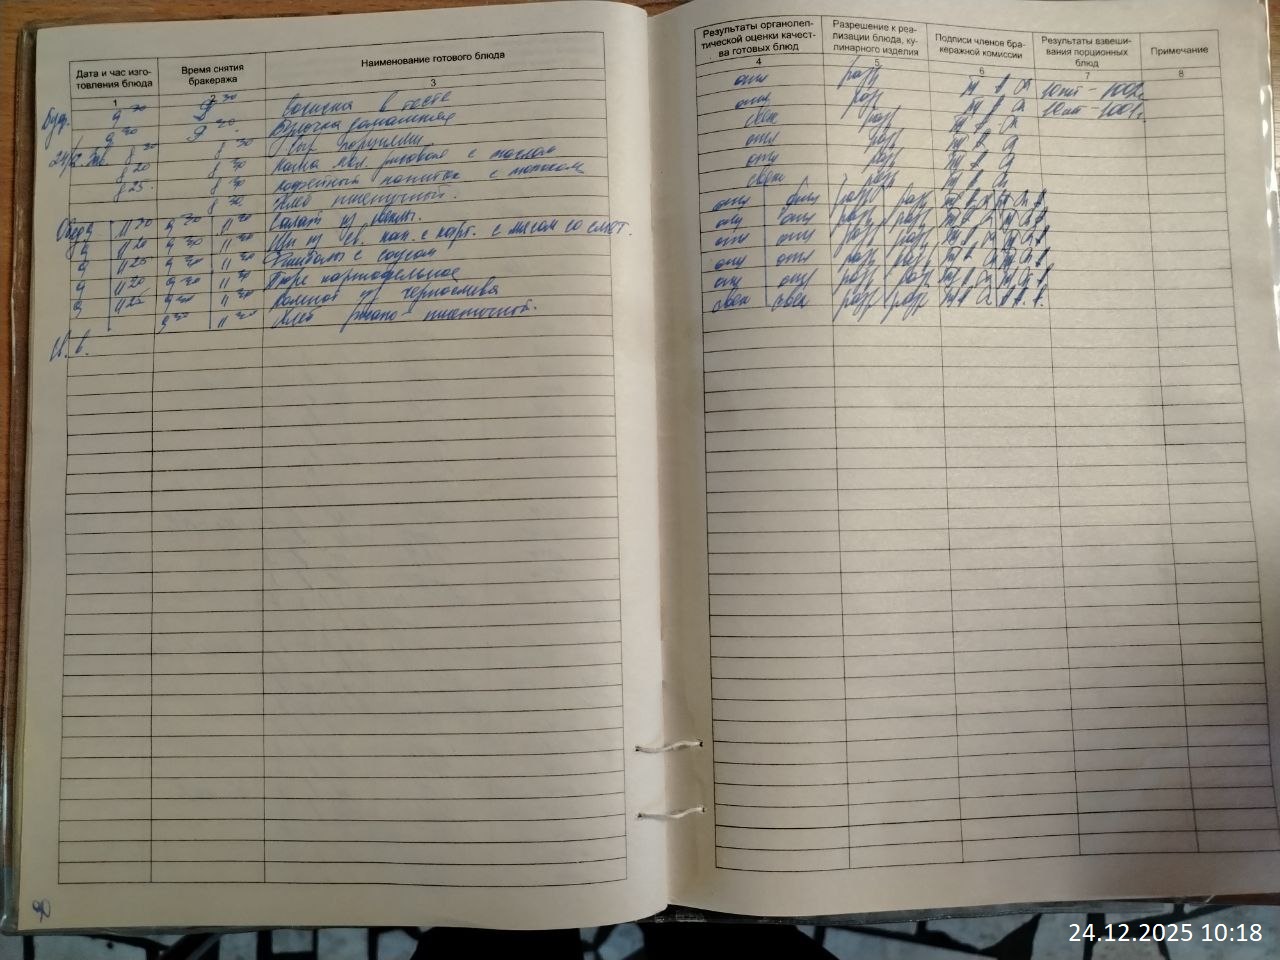 Дата и час изго-
товления блюда
Время снятия
бракеража
Наименование готового блюда
1
2
3
Буф. 9 30 9 30 Сосиска в тесте
9 30 9 30 Булочка домашняя
24/12 8 30 Сыр порциями
8 20 8 30 Каша мол. рисовая с маслом
8 25 8 30 Кофейный напиток с молоком
8 30 Хлеб пшеничный.
Обед 9 11 20 9 30 11 30 Салат из свеклы.
9 11 20 9 30 11 30 Щи из св. кап. с карт. с мясом со смет.
9 11 25 9 30 11 30 с соусом
9 11 20 9 30 11 30 Пюре картофельное
9 11 25 9 30 11 30 Компот из чернослива
9 30 11 30 Хлеб ржано-пшеничной.
90
Результаты органолеп-
тической оценки качест-
ва готовых блюд
Разрешение к реа-
лизации блюда, ку-
линарного изделия
Подписи членов бра-
керажной комиссии
Результаты взвеши-
вания порционных
блюд
Примечание
4
5
6
7
8
отл разр 10шт - 100г.
отл разр 10шт - 100г.
свеж разр
отл разр
отл разр
свеж разр
отл отл разр разр
отл отл разр разр
отл отл разр разр
отл отл разр разр
отл отл разр разр
свеж свеж разр разр
24.12.2025 10:18